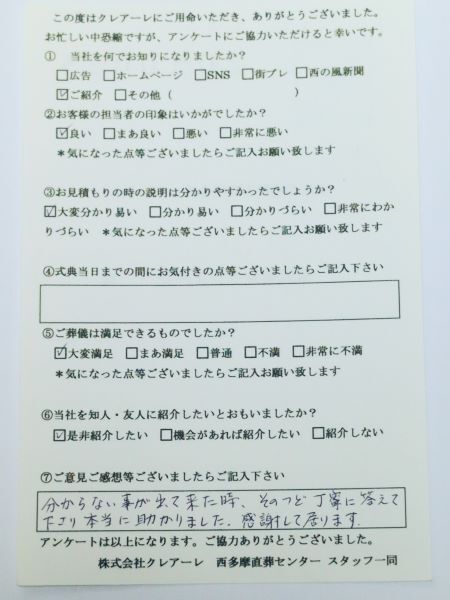 この度はクレアーレにご用命いただき、ありがとうございました。
お忙しい中恐縮ですが、アンケートにご協力いただけると幸いです。
① 当社を何でお知りになりましたか？
□広告 □ホームページ □SNS □街プレ □西の風新聞
☑ご紹介 □その他（ ）
②お客様の担当者の印象はいかがでしたか？
☑良い □まあ良い □悪い □非常に悪い
＊気になった点等ございましたらご記入お願い致します
③お見積もりの時の説明は分かりやすかったでしょうか？
☑大変分かり易い □分かり易い □分かりづらい □非常にわか
りづらい ＊気になった点等ございましたらご記入お願い致します
④式典当日までの間にお気付きの点等ございましたらご記入下さい
⑤ご葬儀は満足できるものでしたか？
☑大変満足 □まあ満足 □普通 □不満 □非常に不満
＊気になった点等ございましたらご記入お願い致します
⑥当社を知人・友人に紹介したいとおもいましたか？
☑是非紹介したい □機会があれば紹介したい □紹介しない
⑦ご意見ご感想等ございましたらご記入下さい
分からない事が出て来た時、そのつど丁寧に答えて
下さり本当に助かりました。感謝して居ります。
アンケートは以上になります。ご協力ありがとうございました。
株式会社クレアーレ 西多摩直葬センター スタッフ一同